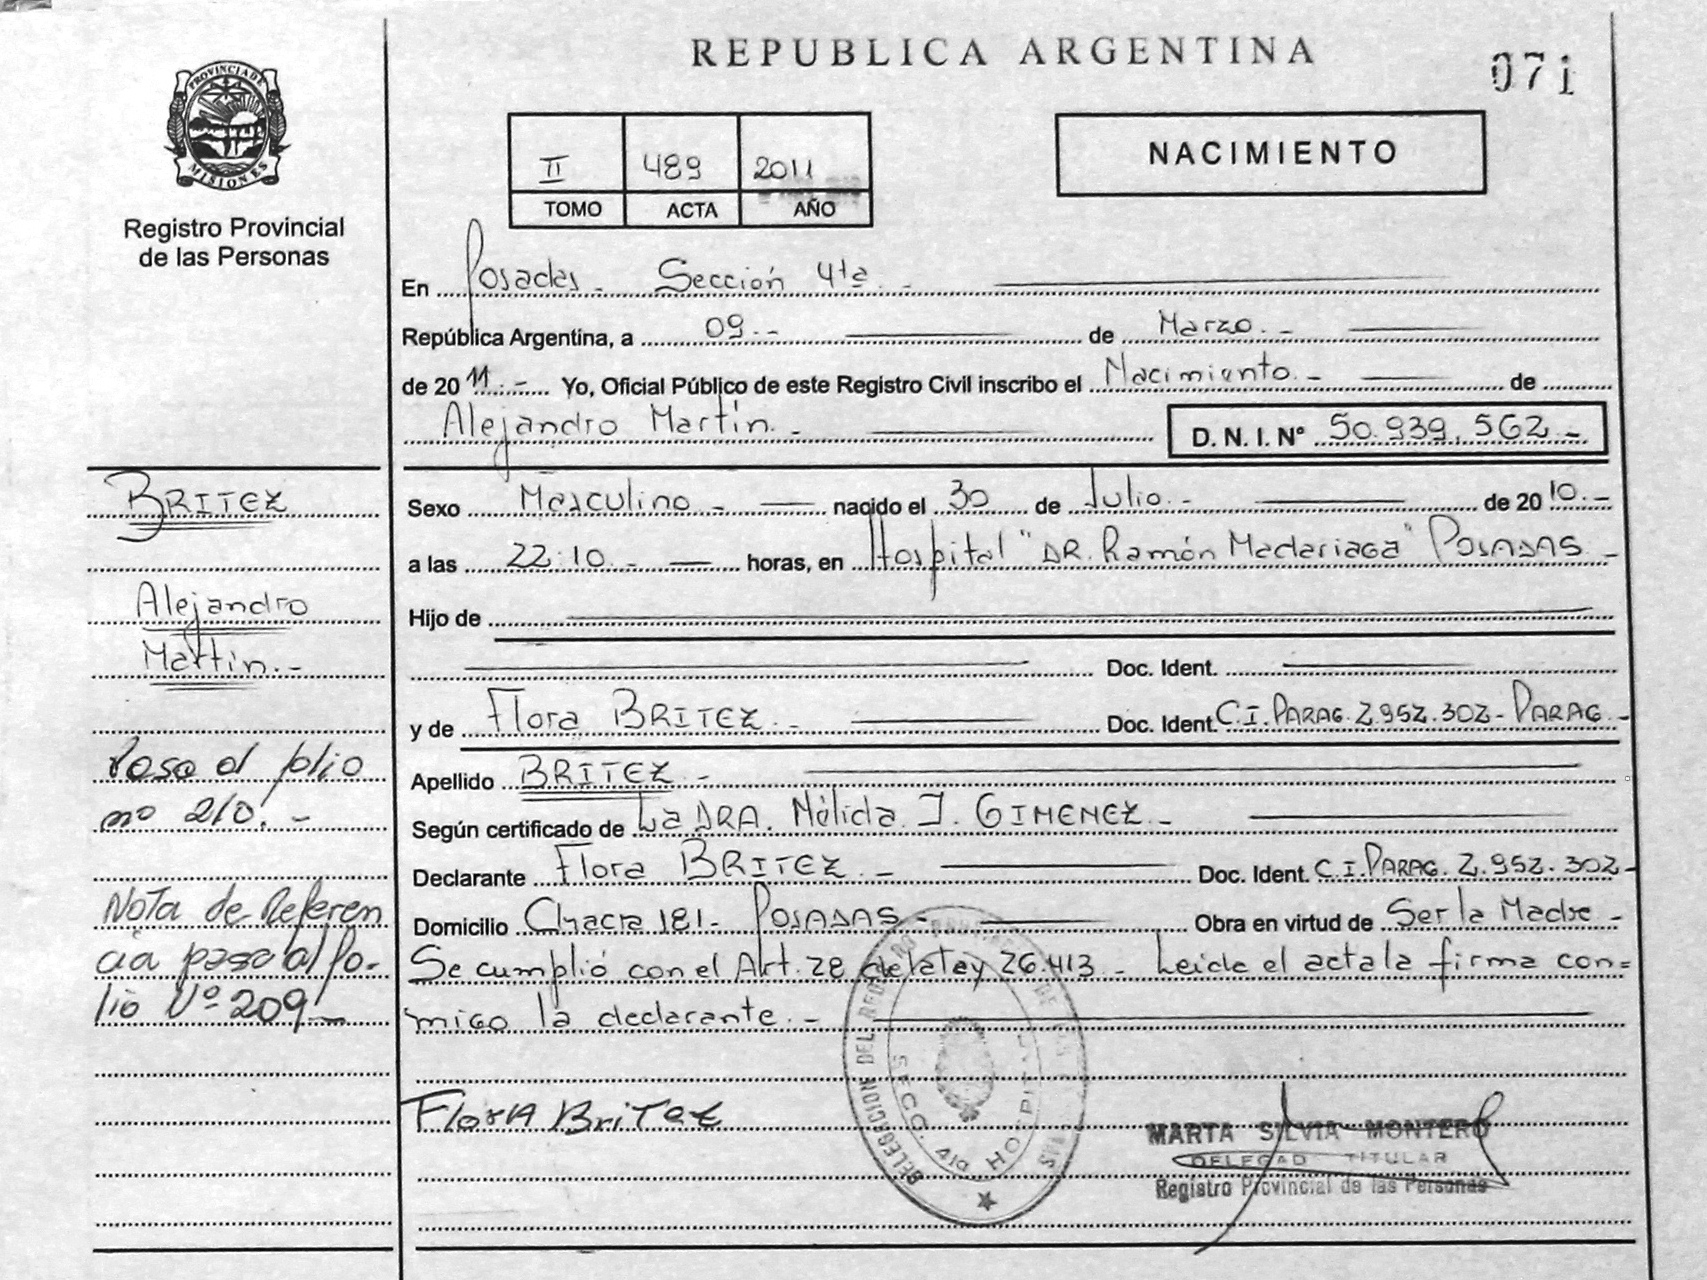 REPUBLICA ARGENTINA
071
PROVINCIA DE
MISIONES
Registro Provincial
de las Personas
II 489 2011
TOMO ACTA AÑO
NACIMIENTO
En Posadas - Sección 4ta. -
República Argentina, a 09.- de Marzo. -
de 2011.- Yo, Oficial Público de este Registro Civil inscribo el Nacimiento. - de
Alejandro Martín. - D. N. I. N° 50.939.562 -
BRITEZ
Alejandro
Martín.-
Pasa al folio
nº 210. -
Nota de Referen
cia pasa al fo-
lio Nº 209 -
Sexo Masculino - nacido el 30 de Julio.- de 2010.-
a las 22:10.- horas, en Hospital "DR. Ramón Madariaga" POSADAS -
Hijo de
Doc. Ident.
y de Flora BRITEZ.- Doc. Ident. C.I. PARAG. 2.952.302- PARAG.-
Apellido BRITEZ.-
Según certificado de La DRA. Nélida J. GIMENEZ.-
Declarante Flora BRITEZ.- Doc. Ident. C.I. PARAG. 2.952.302-
Domicilio Chacra 181- POSADAS- Obra en virtud de Ser la Madre -
Se cumplió con el Art. 28 de la Ley 26.413 - Leída el acta la firma con=
migo la declarante.-
Flora Britez
DELEGACION DEL REGISTRO
SECC. 4ta HOSPITAL
MARTA SILVIA MONTERO
DELEGAD TITULAR
Registro Provincial de las Personas